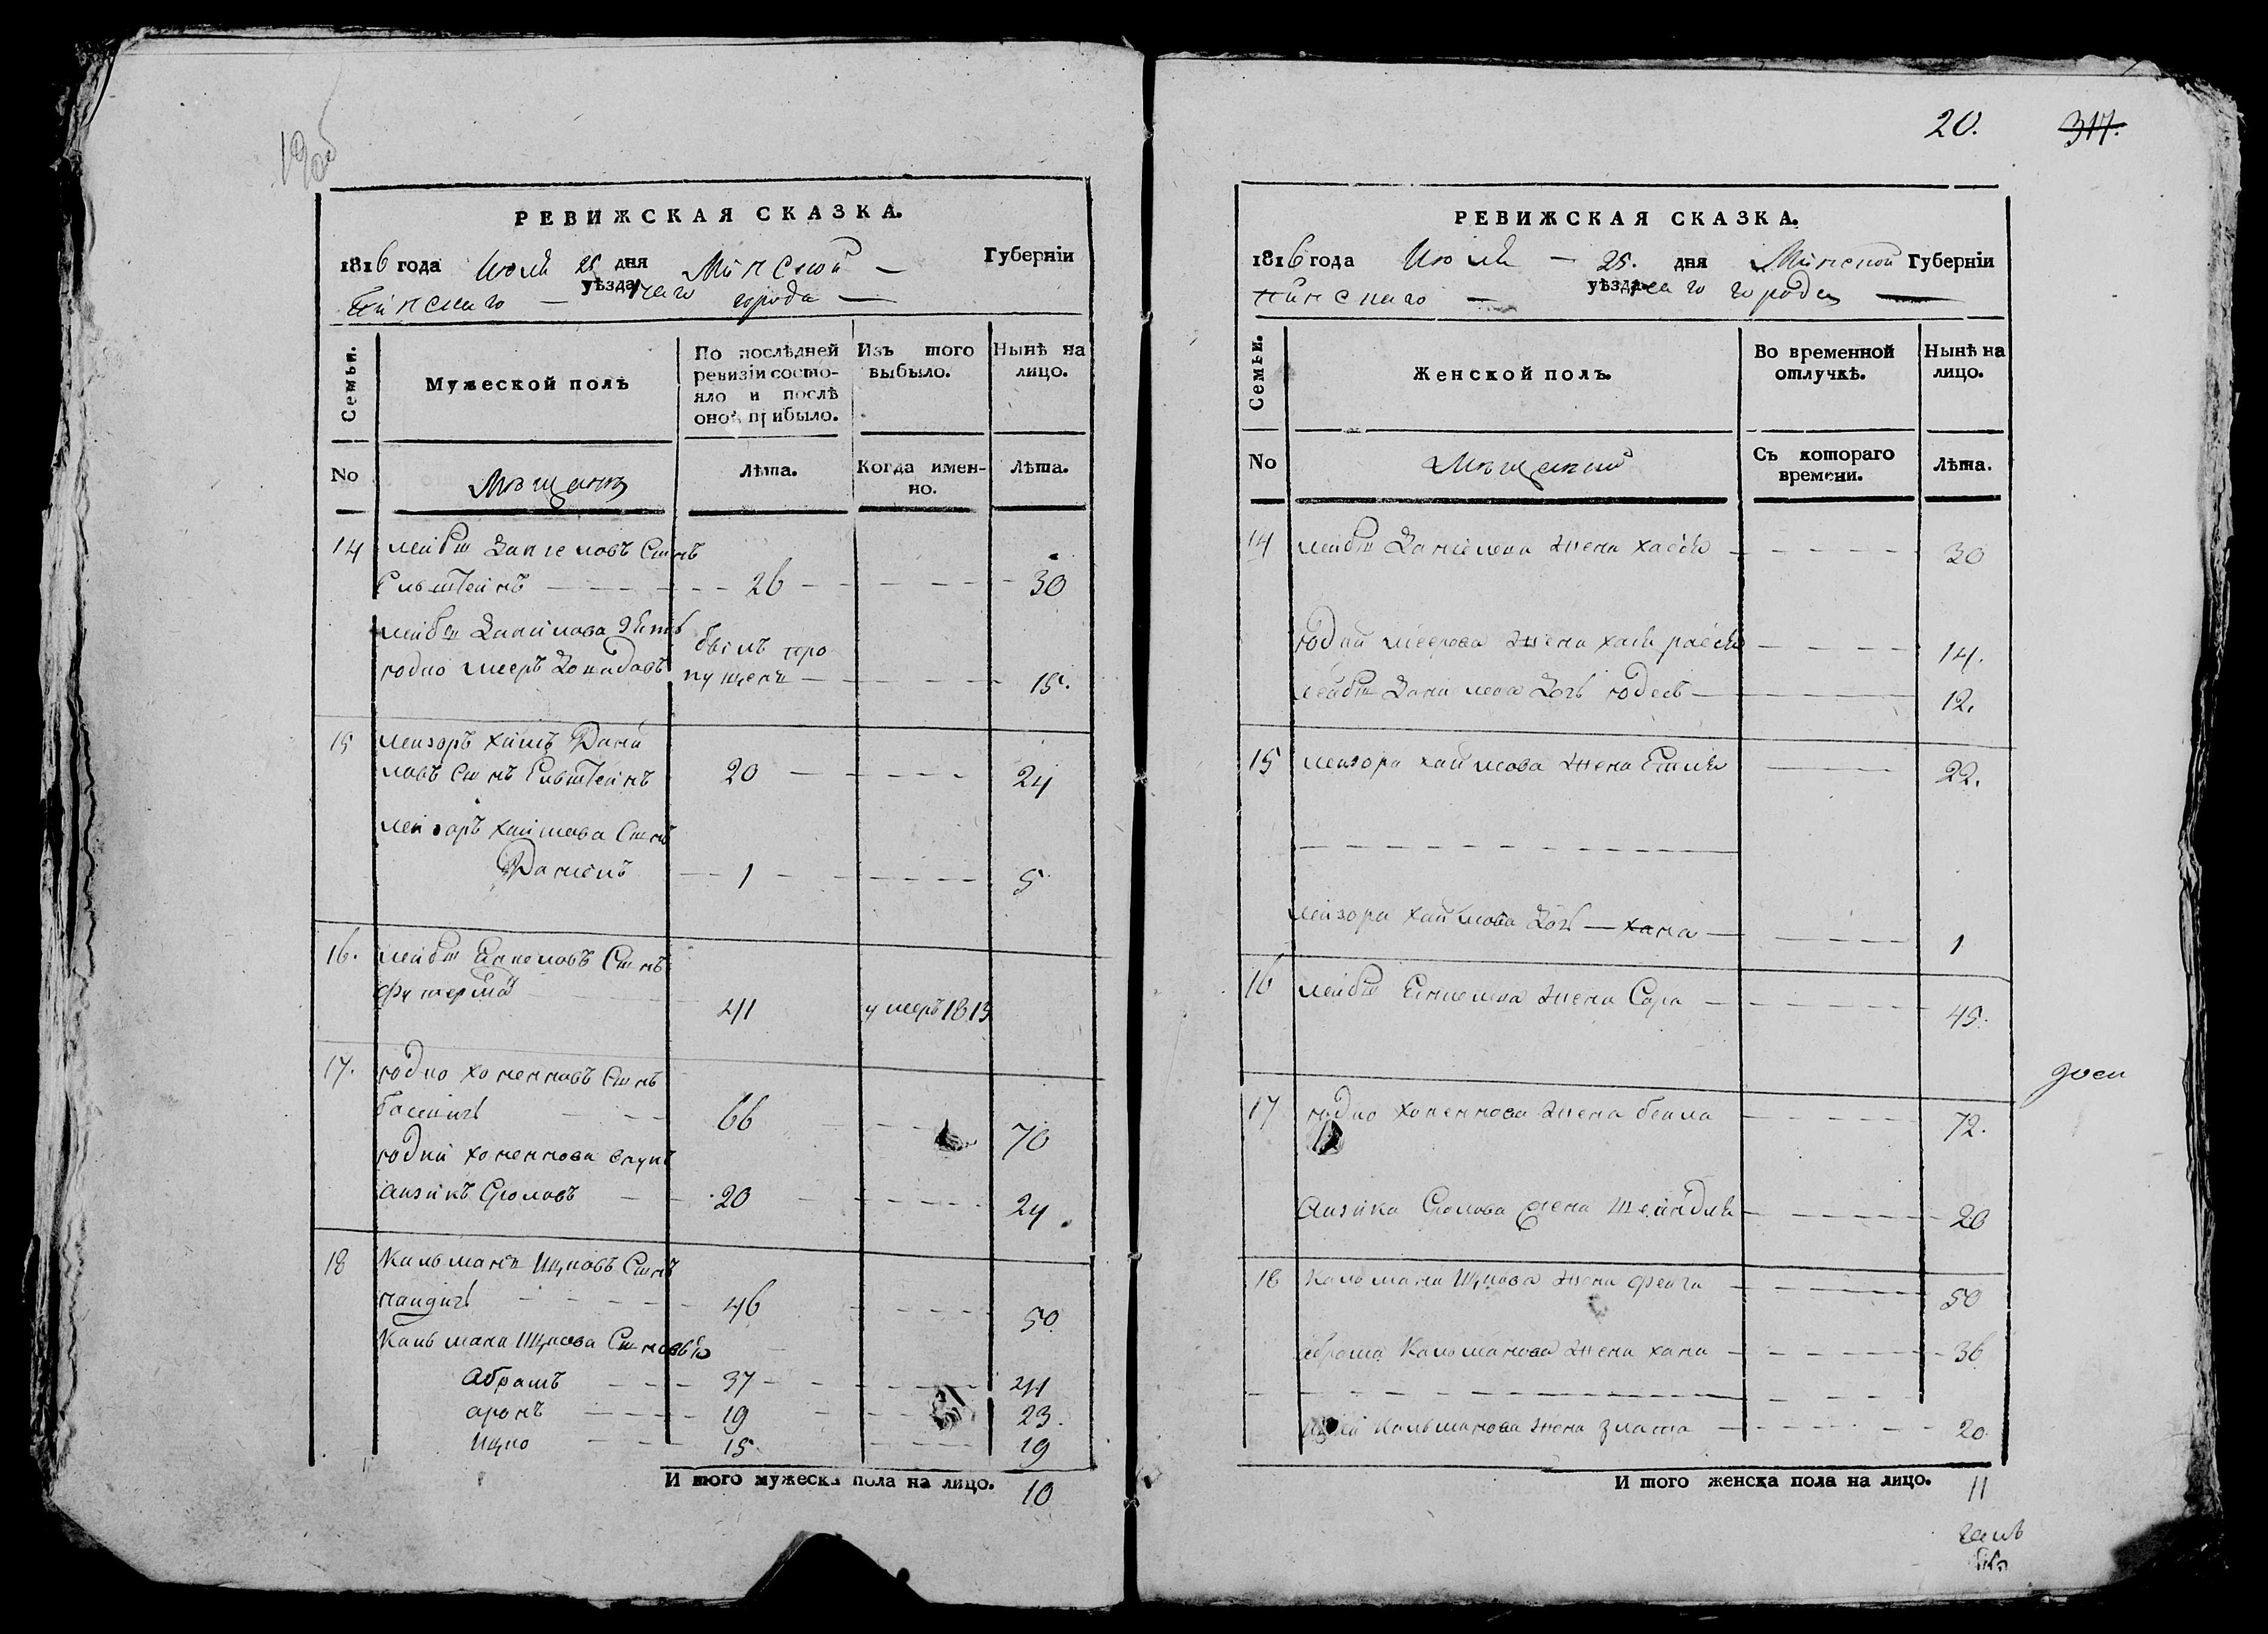 19об
РЕВИЖСКАЯ СКАЗКА.
1816 года Июля 25 дня Минской Губерніи
Пинскаго уѣзднаго города
Семьи.
Мужеской полъ
По послѣдней ревизіи состо-
яло и послѣ
оной прибыло.
Изъ того
выбыло.
Нынѣ на
лицо.
No
Мѣщанѣ
Лѣта.
Когда имен-
но.
Лѣта.
14 Лейба Даниеловъ Сынъ
Ельштейнъ 26 30
Лейбы Данилова зять
Юдко Мееръ Давидовъ былъ про
пущенъ 15.
15 Лейзоръ Хаимъ Дани
ловъ Сынъ Ельштейнъ 20 24
Лейзоръ Хаимова Сынъ
Даніелъ 1 5
16. Лейба Сынъ
41 умеръ 1813
17. Юдко Хоненновъ Сынъ
66 70
Юдки Хоненнова внукъ
Аизикъ Сроловъ 20 24
18 Кальманъ Ицковъ Сынъ
46 50
Кальмана Ицкова Сыновья
Абрамъ 37 41
Аронъ 19 23.
Ицко 15 19
И того мужеска пола на лицо. 10
20. 317.
РЕВИЖСКАЯ СКАЗКА.
1816 года Июля 25. дня Минской Губерніи
Пинскаго уѣзднаго города
Семьи.
Женской полъ.
Во временной
отлучкѣ.
Нынѣ на
лицо.
No
Мѣщанки
Съ котораго
времени.
Лѣта.
14 Лейбы Даниелева жена Хаська 30
Юдки Меерова жена Хая Раеска 14.
Лейбы Данилева Дочь Юдесь 12.
15 Лейзора Хаимова жена Естка 22.
Лейзора Хаимова Дочь Хана 1
16 Лейбы жена Сора 45.
17 Юдко Хоненнова жена Бейла 72.
Аизика Сролова жена Шейндля 20
18 Кальмана Ицкова жена Фейга 50
Абрама Кальманова жена Хана 36
Кальманова жена Злата 20
И того женска пола на лицо. 11